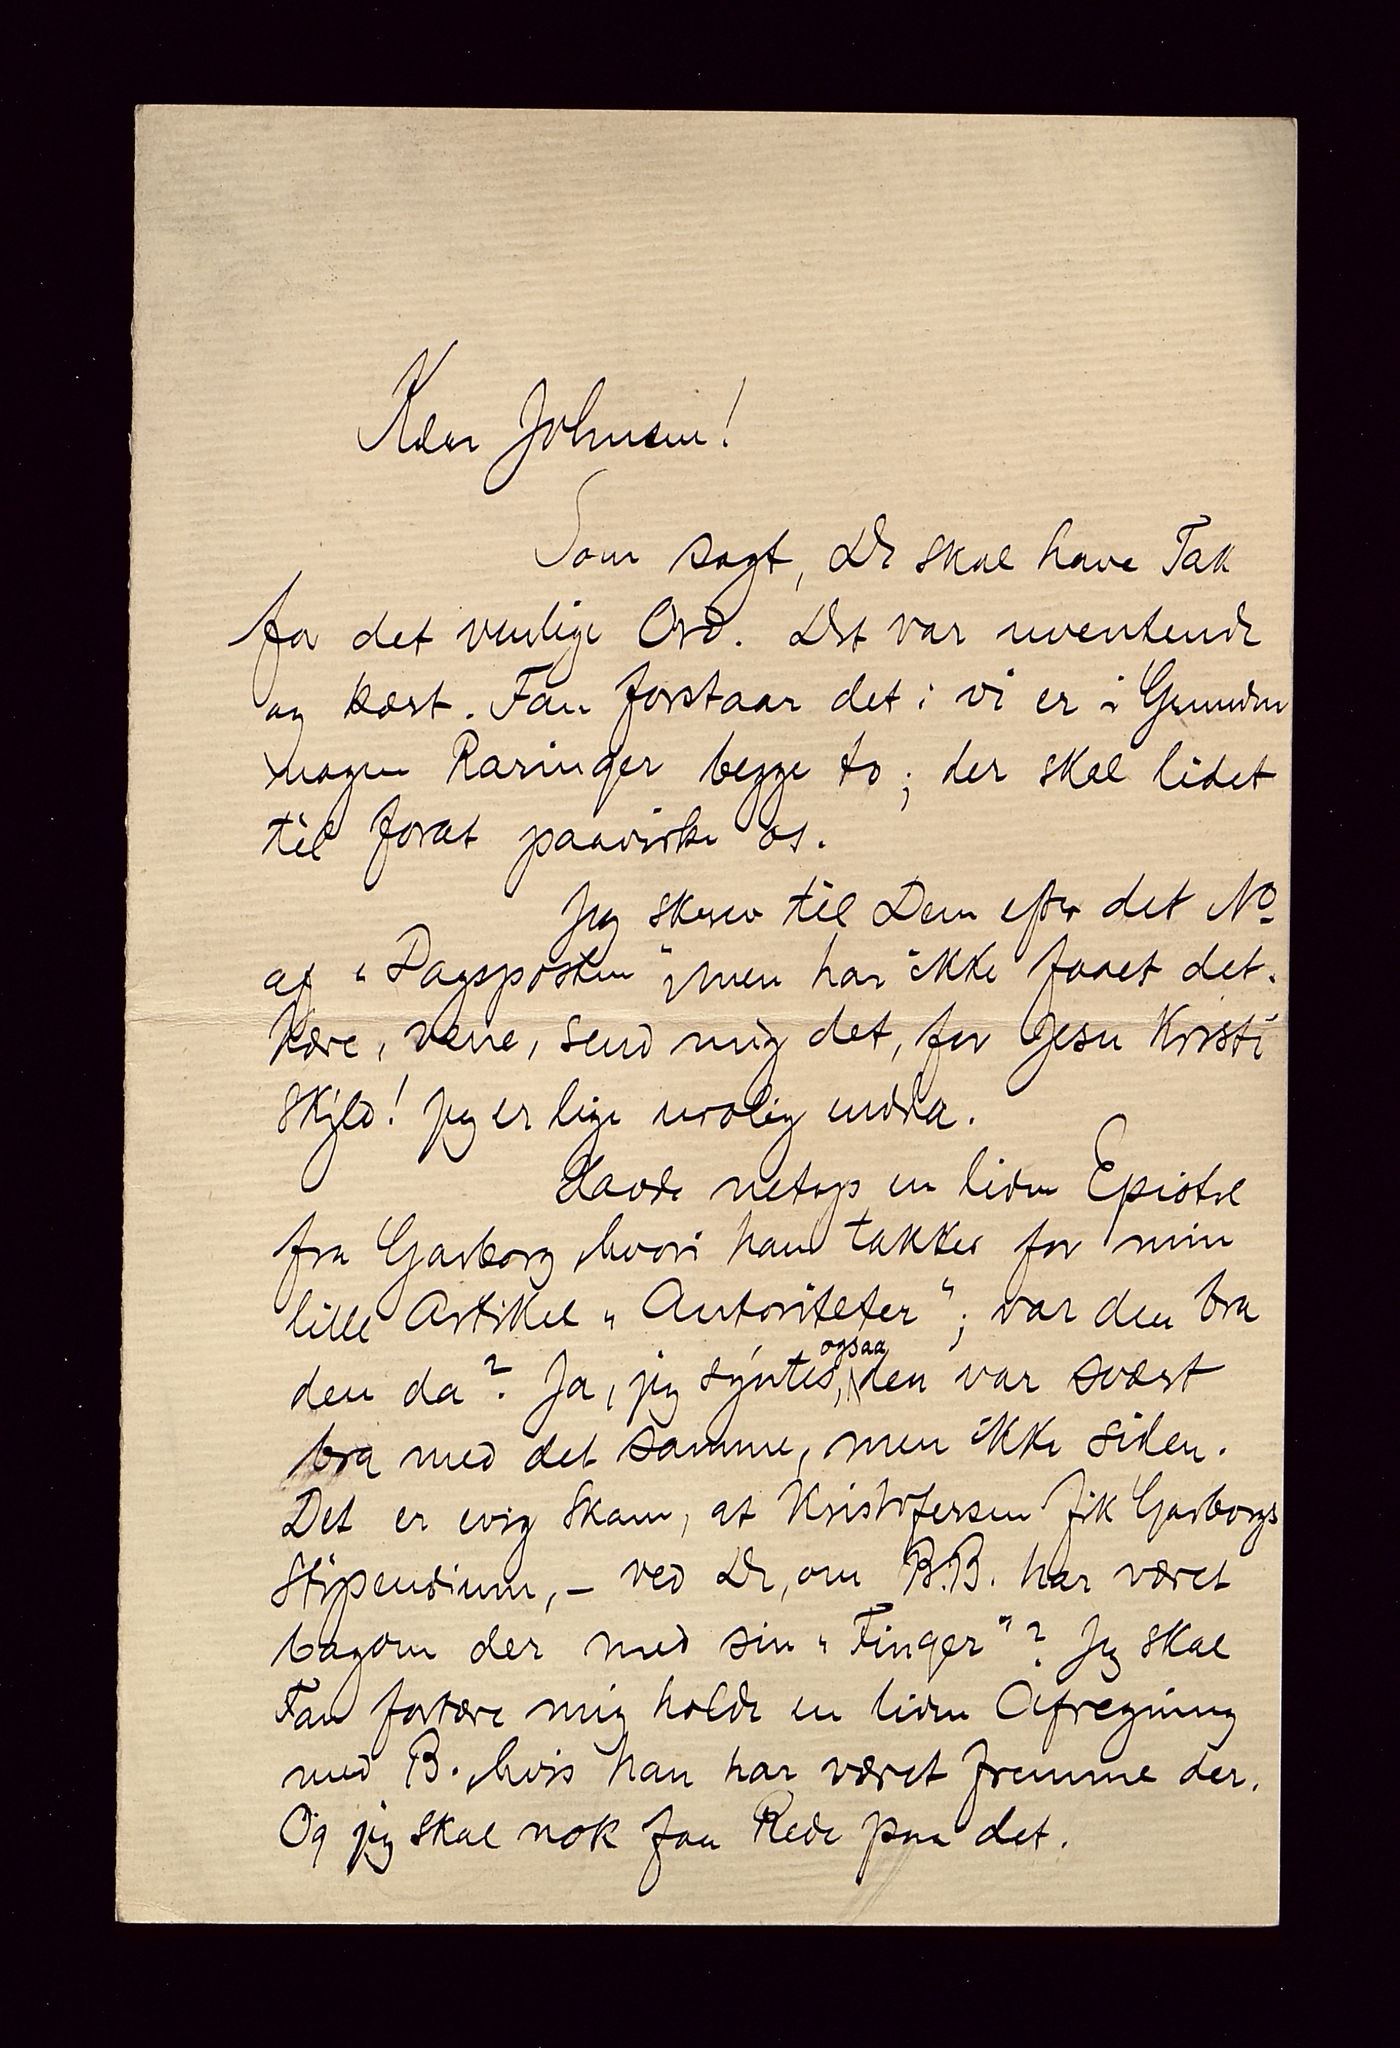 Kære Johnsen!
Som sagt, De skal have Tak
for det venlige Ord. Det var uventende
og kært. Fan forstaar det: vi er i Grunden
nogen Raringer begge to; der skal lidet
til forat paavirke os.
Jeg skrev til Dem efter det No
af „Dagsposten", men har ikke faaet det.
Kære, vene, send mig det, for Jesu Kristi
Skyld! Jeg er lige urolig endda.
Havde netop en liden Epistel
fra Garborg, hvori han takker for min
lille Artikel „Autoriteter"; var den bra
den da? Ja, jeg syntes, ogsaa den var svært
bra med det samme, men ikke siden.
Det er evig Skam, at Kristofersen fik Garborgs
Stipendium, – ved De, om B.B. har været
bagom der med sin „Finger"? Jeg skal
Fan fortære mig holde en liden Afregning
med B. hvis han har været fremme der.
Og jeg skal nok faa Rede paa det.